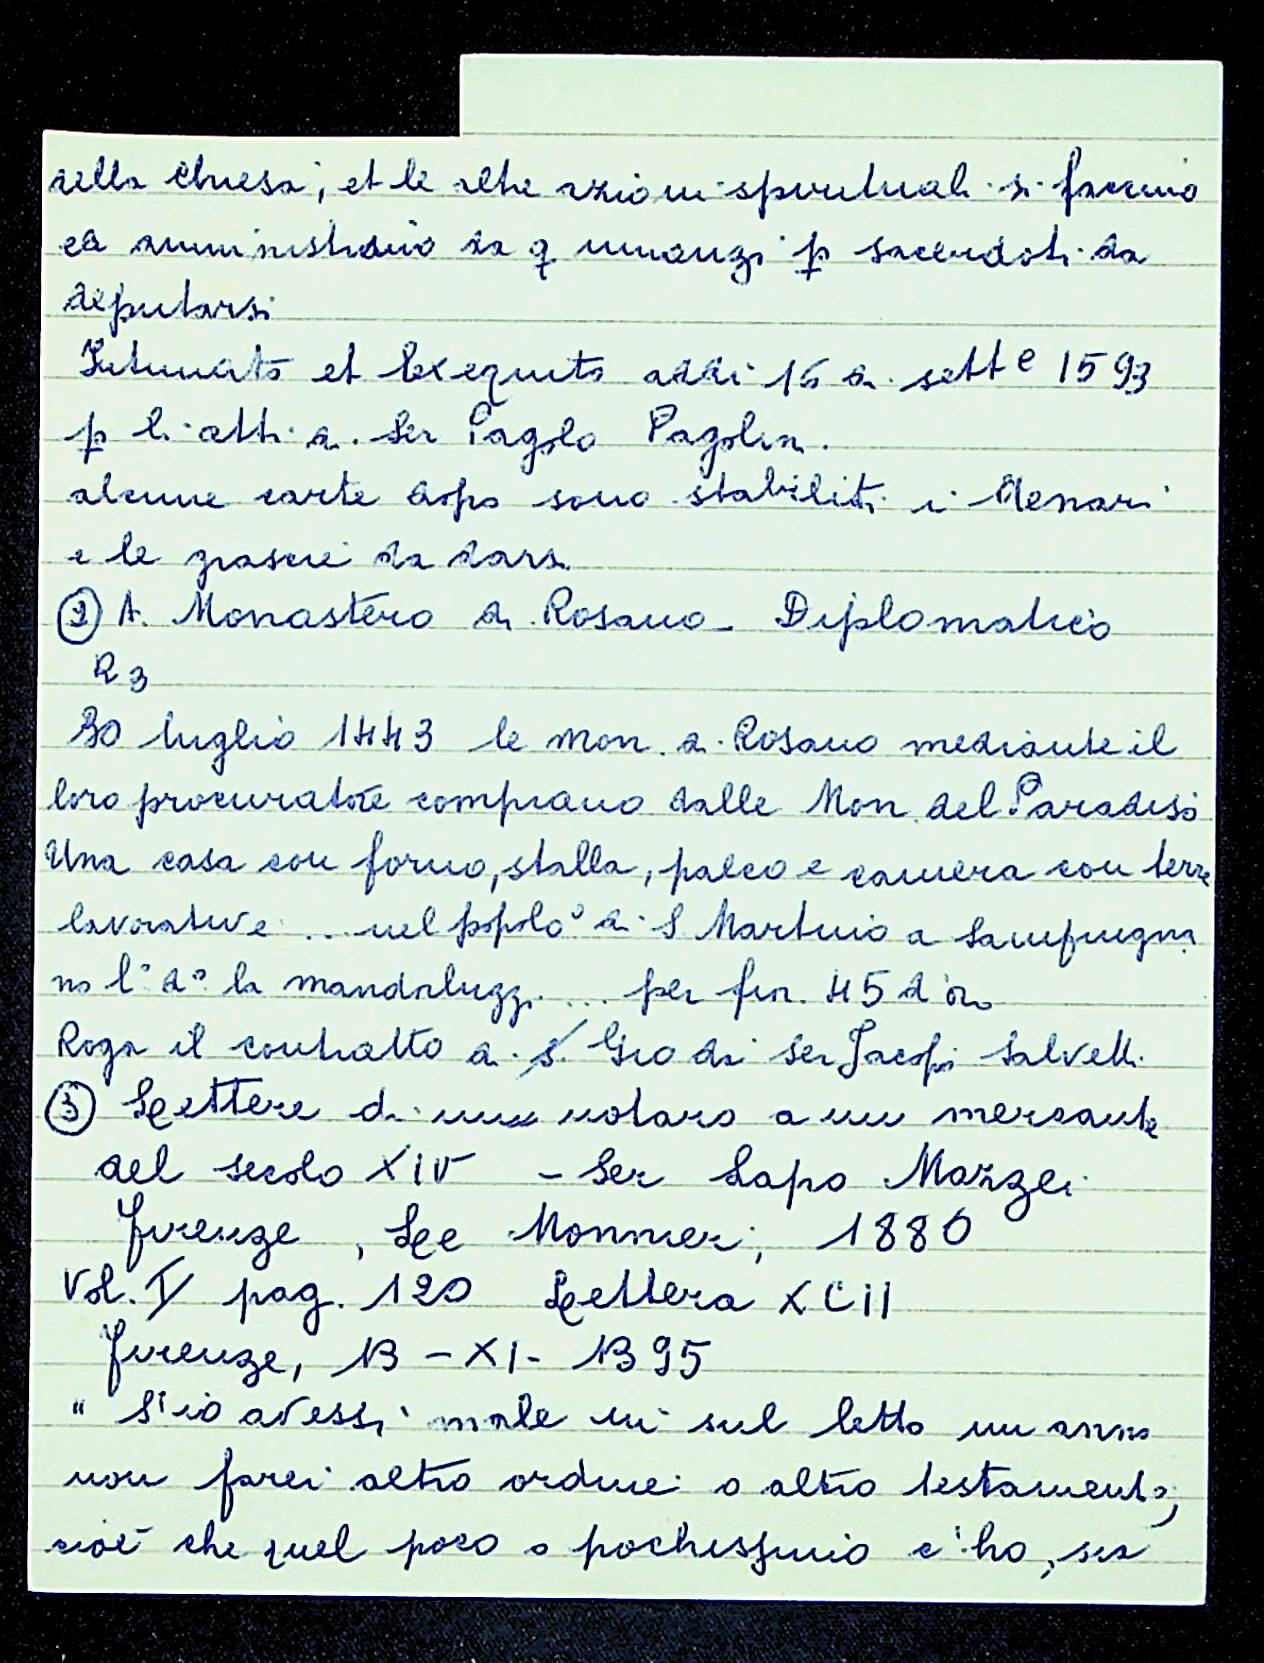 della chiesa, et le altre azioni spirituali si faccino
ed amministrino da q innanzi p sacerdoti da
deputarsi
Intimato et exequito addi 16 di sett.e 1593
p li atti di Ser Pagolo Pagolin.
alcune carte dopo sono stabiliti i denari
e le grascie da darsi
② A. Monastero di Rosano - Diplomatico
R 3
30 luglio 1443 le mon. di Rosano mediante il
loro procuratore comprano dalle Mon. del Paradiso
Una casa con forno, stalla, palco e camera con terre
lavorative ... nel popolo di S Martino a Sampugna
no l° d° la mandoluzzi ... per fior. 45 d'oro
Roga il contratto di Gio di Ser Jacopo Salvetti
③ Lettere di un notaro a un mercante
del secolo XIV - Ser Lapo Mazzei
Firenze, Le Monnier, 1880
Vol. I pag. 120 Lettera XCII
Firenze, 13 - XI - 1395
" S'io avessi male in sul letto un anno
non farei altro ordine o altro testamento;
cioè che quel poco o pochissimo c'ho, sia